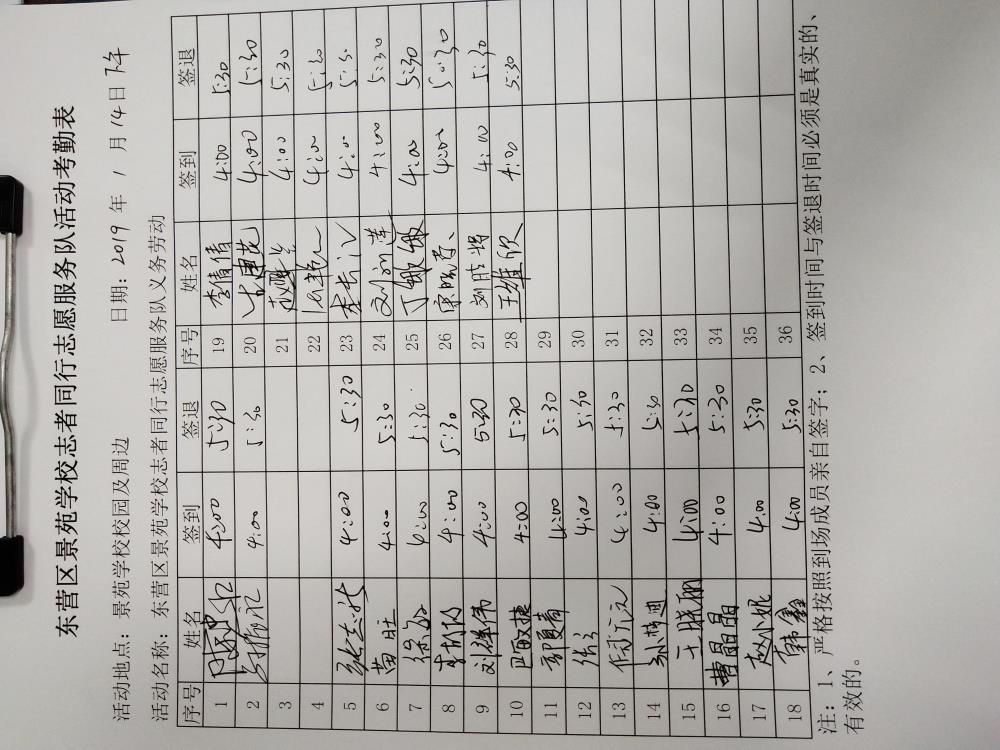 东营区景苑学校志者同行志愿服务队活动考勤表
活动地点：景苑学校校园及周边 日期：2019 年 1 月 14 日 下午
活动名称：东营区景苑学校志者同行志愿服务队义务劳动
序号 姓名 签到 签退 序号 姓名 签到 签退
1 4:00 5:30 19 李倩倩 4:00 5:30
2 4:00 5:30 20 4:00 5:30
3 21 4:00 5:30
4 22 4:00 5:30
5 4:00 5:30 23 4:00 5:30
6 苗壮 4:00 5:30 24 刘湘莲 4:00 5:30
7 4:00 5:30 25 丁敏敏 4:00 5:30
8 4:00 5:30 26 4:00 5:30
9 刘祥伟 4:00 5:30 27 4:00 5:30
10 巴敏捷 4:00 5:30 28 王维欣 4:00 5:30
11 郭夏青 4:00 5:30 29
12 4:00 5:30 30
13 4:00 5:30 31
14 孙梦迪 4:00 5:30 32
15 4:00 5:30 33
16 曹晶晶 4:00 5:30 34
17 赵小妮 4:00 5:30 35
18 韩鑫 4:00 5:30 36
注：1、严格按照到场成员亲自签字；2、签到时间与签退时间必须是真实的、
有效的。